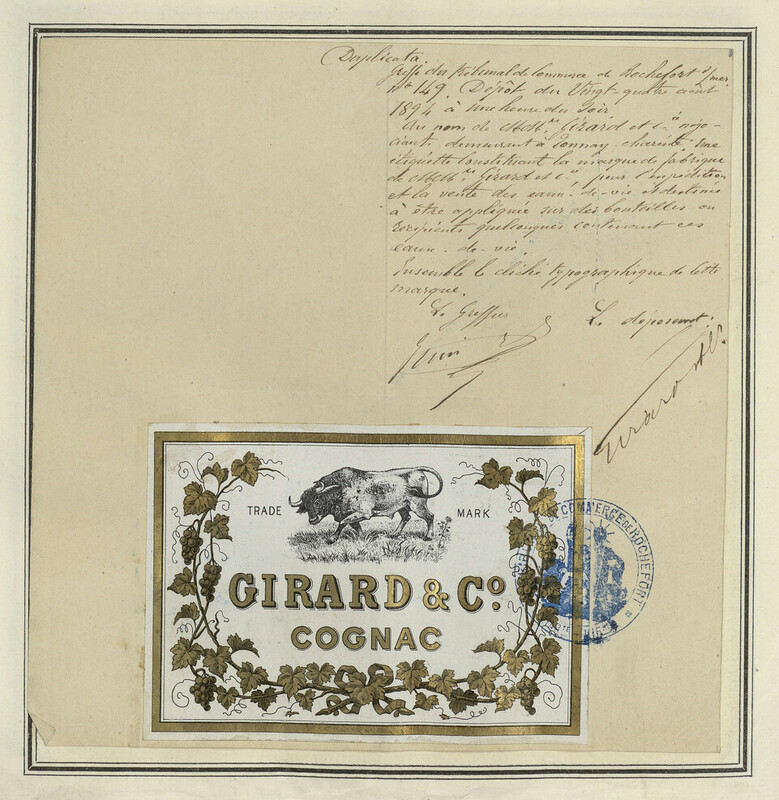 Duplicata
Greffe du tribunal de Commerce de Rochefort s/mer
N° 149. Dépôt du Vingt-quatre août
1894 à une heure du soir
Au nom de MM. Girard et Cie négo-
ciants demeurant à Tonnay-Charente. Une
étiquette constituant la marque de fabrique
de MM. Girard et Cie pour l'expédition
et la vente des eaux-de-vie et destinée
à être appliquée sur des bouteilles ou
récipients quelconques contenant ces
eaux-de-vie.
Ensemble le cliché typographique de cette
marque.
Le Greffier Le déposant:
Girard &Co
TRADE MARK
GIRARD & Co
COGNAC
DE COMMERCE DE ROCHEFORT